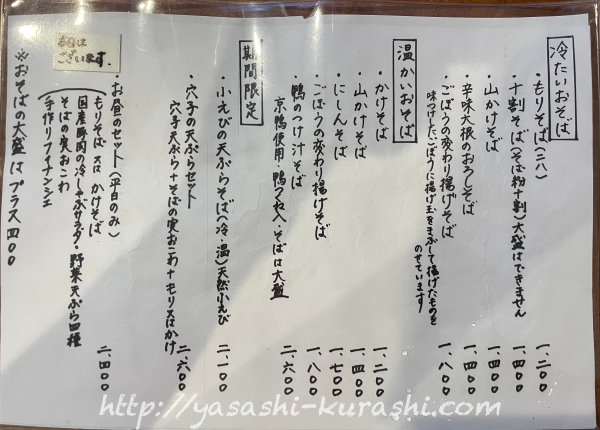 冷たいおそば
・もりそば(二八) 一、二〇〇
・十割そば(そば粉十割)大盛はできません 一、四〇〇
・山かけそば 一、四〇〇
・辛味大根のおろしそば 一、四〇〇
・ごぼうの変わり揚げそば 一、八〇〇
味つけしたごぼうに揚げ玉をまぶして揚げたものを
のせています
温かいおそば
・かけそば 一、二〇〇
・山かけそば 一、四〇〇
・にしんそば 一、七〇〇
・ごぼうの変わり揚げそば 一、八〇〇
・鴨のつけ汁そば 二、六〇〇
京鴨使用・鴨つくね入・そばは大盛
期間限定
・小えびの天ぷらそば(冷・温)天然小えび 二、一〇〇
・穴子の天ぷらセット 二、六〇〇
穴子天ぷら+そばの実おこわ+もり又はかけ
本日は
ございます。
・お昼のセット(平日のみ) 二、四〇〇
もりそば 又は かけそば
国産豚肉の冷しゃぶサラダ・野菜天ぷら四種
そばの実おこわ
手作りフィナンシェ
※おそばの大盛はプラス四〇〇
http://yasashi-kurashi.com